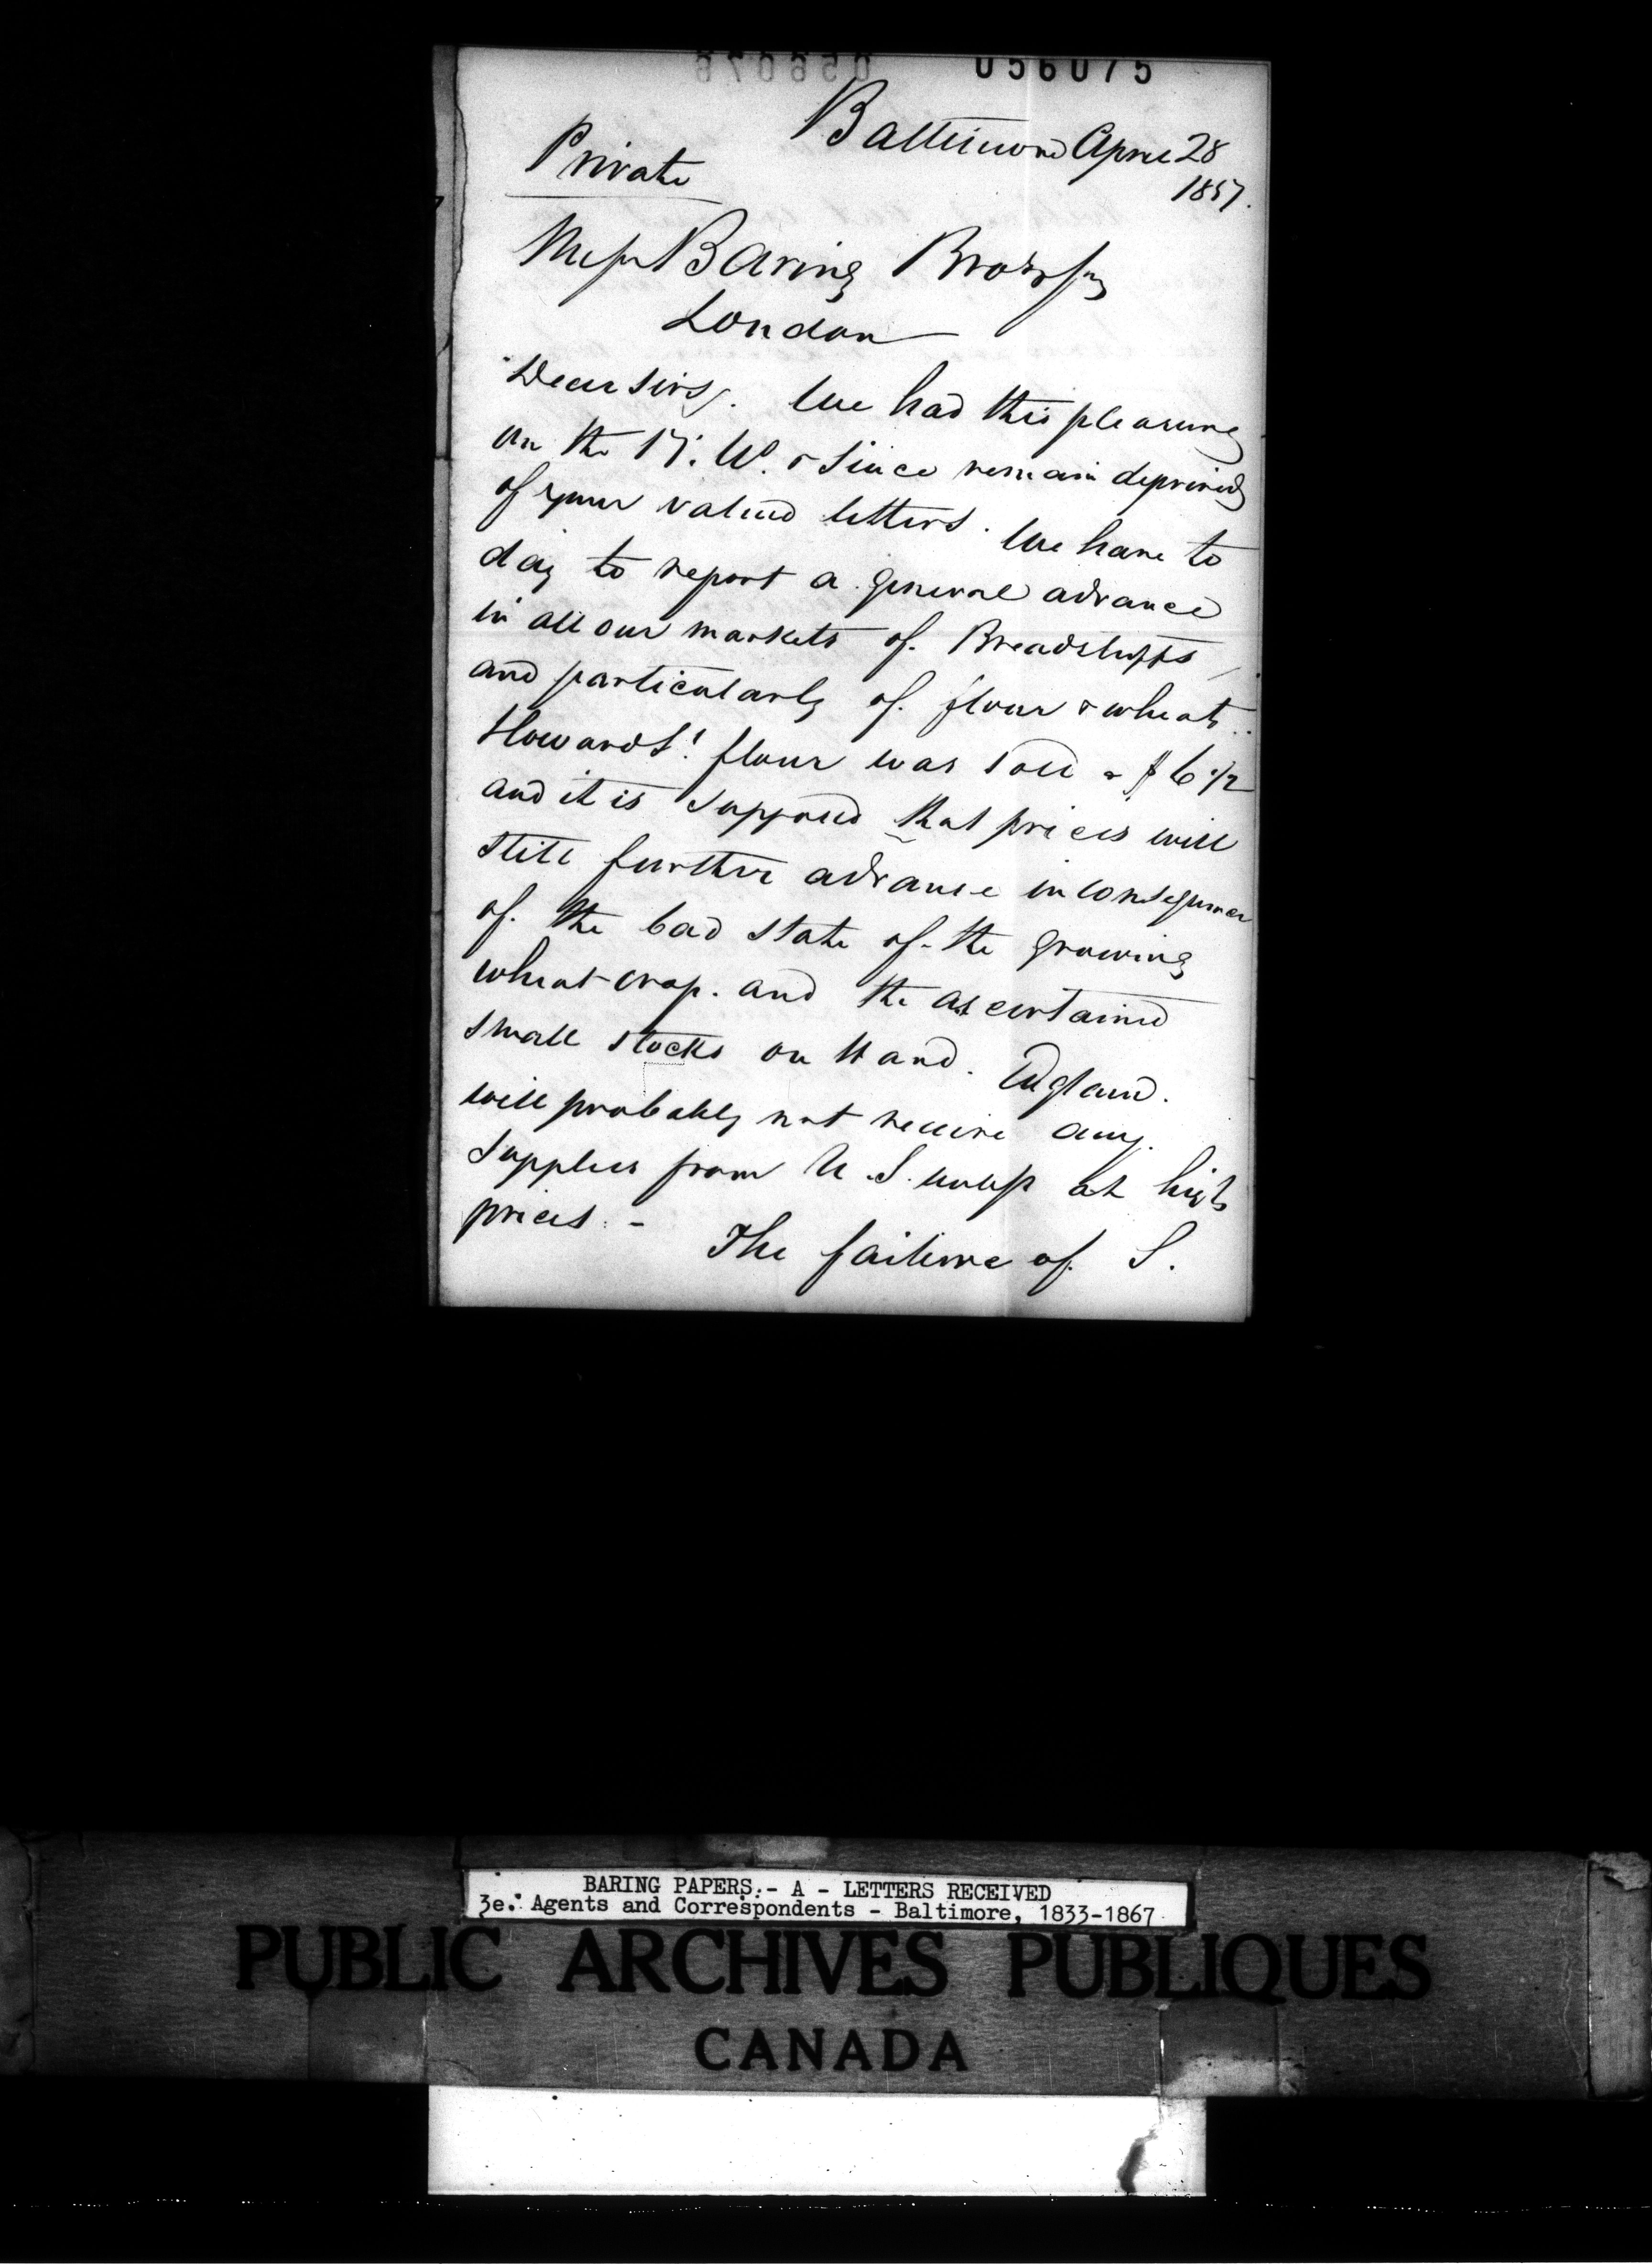 056075
Baltimore April 28
1857.
Private
Mess Baring Brothers
London
Dear Sirs. We had this pleasure
on the 17. & Since remain deprived
of your valued letters. We have to
day to report a general advance
in all our markets of Breadstuffs
and particularly of flour & wheat.
Howard St. flour was sold a $ 6 1/2
and it is supposed that prices will
still further advance in consequence
of the bad state of the growing
wheat crop. and the ascertained
small stocks on Hand. England.
will probably not receive any.
supplies from U.S. unless at high
prices. - The failure of S.
BARING PAPERS.- A - LETTERS RECEIVED
3e. Agents and Correspondents - Baltimore, 1833-1867
PUBLIC ARCHIVES PUBLIQUES
CANADA